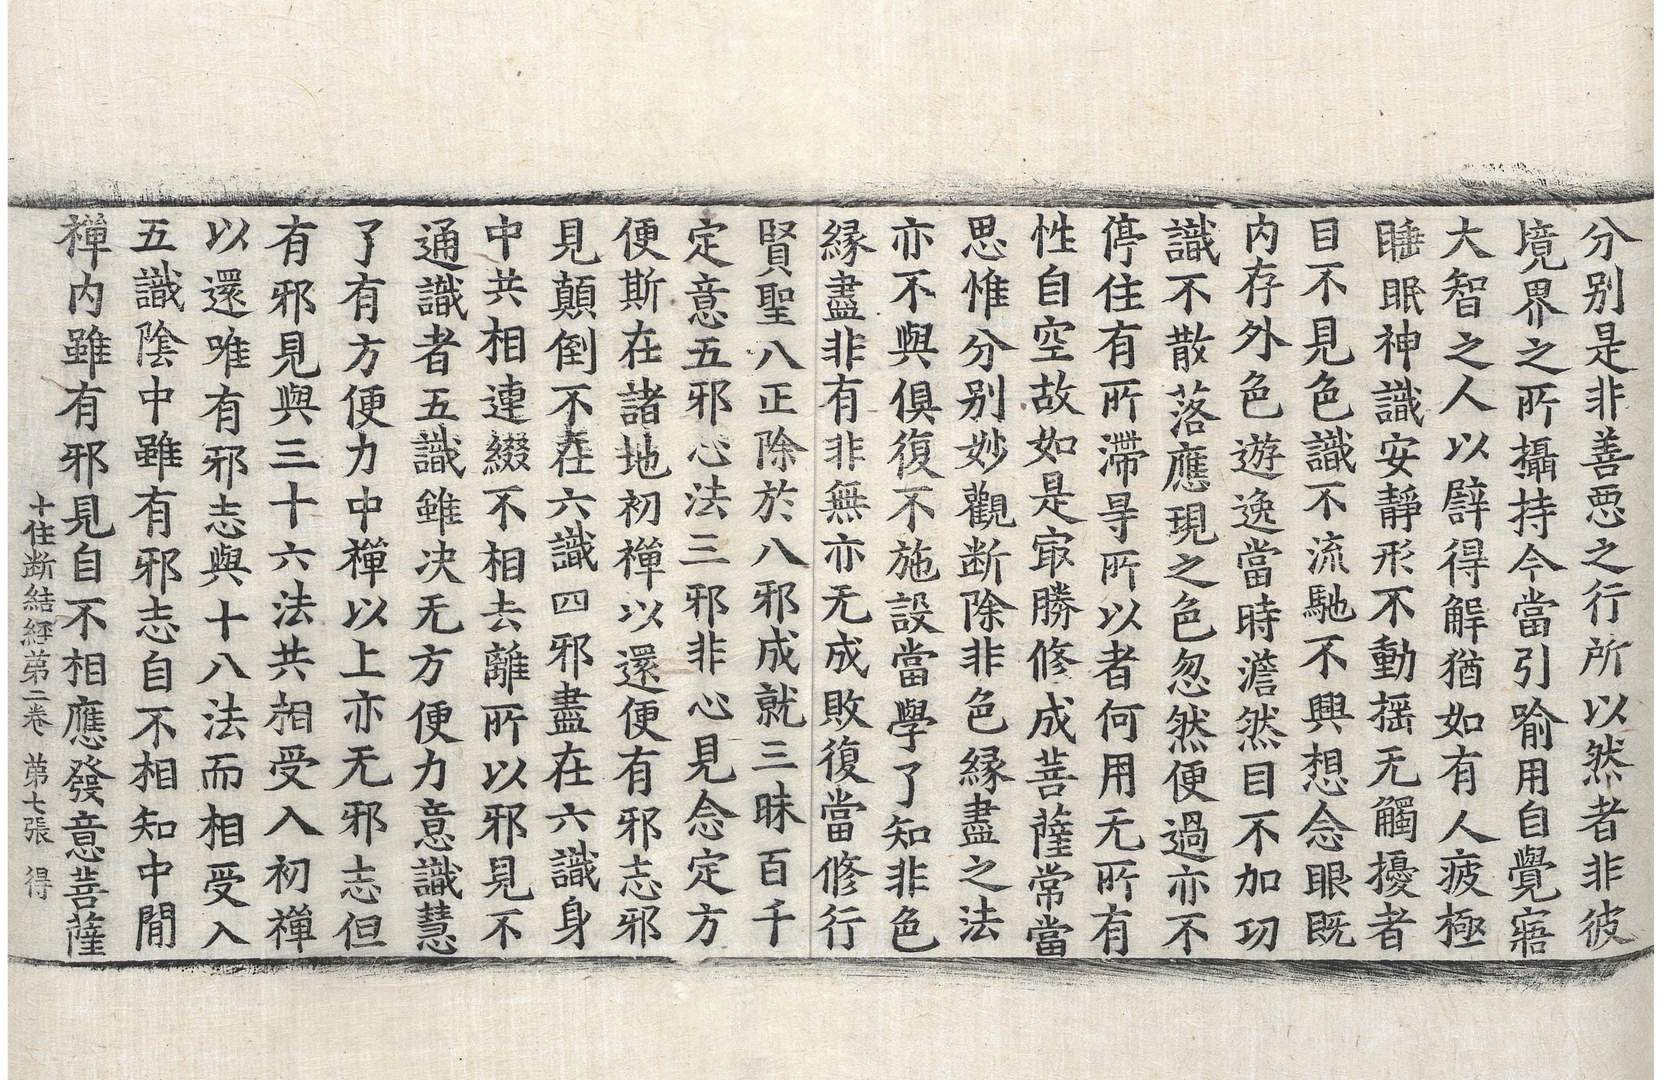 分别是非善惡之行所以然者非彼
境界之所攝持今當引喻用自覺寤
大智之人以辟得解猶如有人疲極
睡眠神識安靜形不動揺无觸擾者
目不見色識不流馳不興想念眼既
内存外色遊逸當時澹然目不加功
識不散落應現之色忽然便過亦不
停住有所滯㝵所以者何用无所有
性自空故如是㝡勝修成菩薩常當
思惟分别妙觀断除非色縁盡之法
亦不與俱復不施設當學了知非色
縁盡非有非無亦无成敗復當修行
賢聖八正除於八邪成就三昧百千
定意五邪心法三邪非心見念定方
便斯在諸地初禪以還便有邪志邪
見顛倒不在六識四邪盡在六識身
中共相連綴不相去離所以邪見不
通識者五識雖决无方便力意識慧
了有方便力中禪以上亦无邪志但
有邪見與三十六法共相受入初禪
以還唯有邪志與十八法而相受入
五識陰中雖有邪志自不相知中間
禪内雖有邪見自不相應發意菩薩
十住断結經第二卷 第七張 得